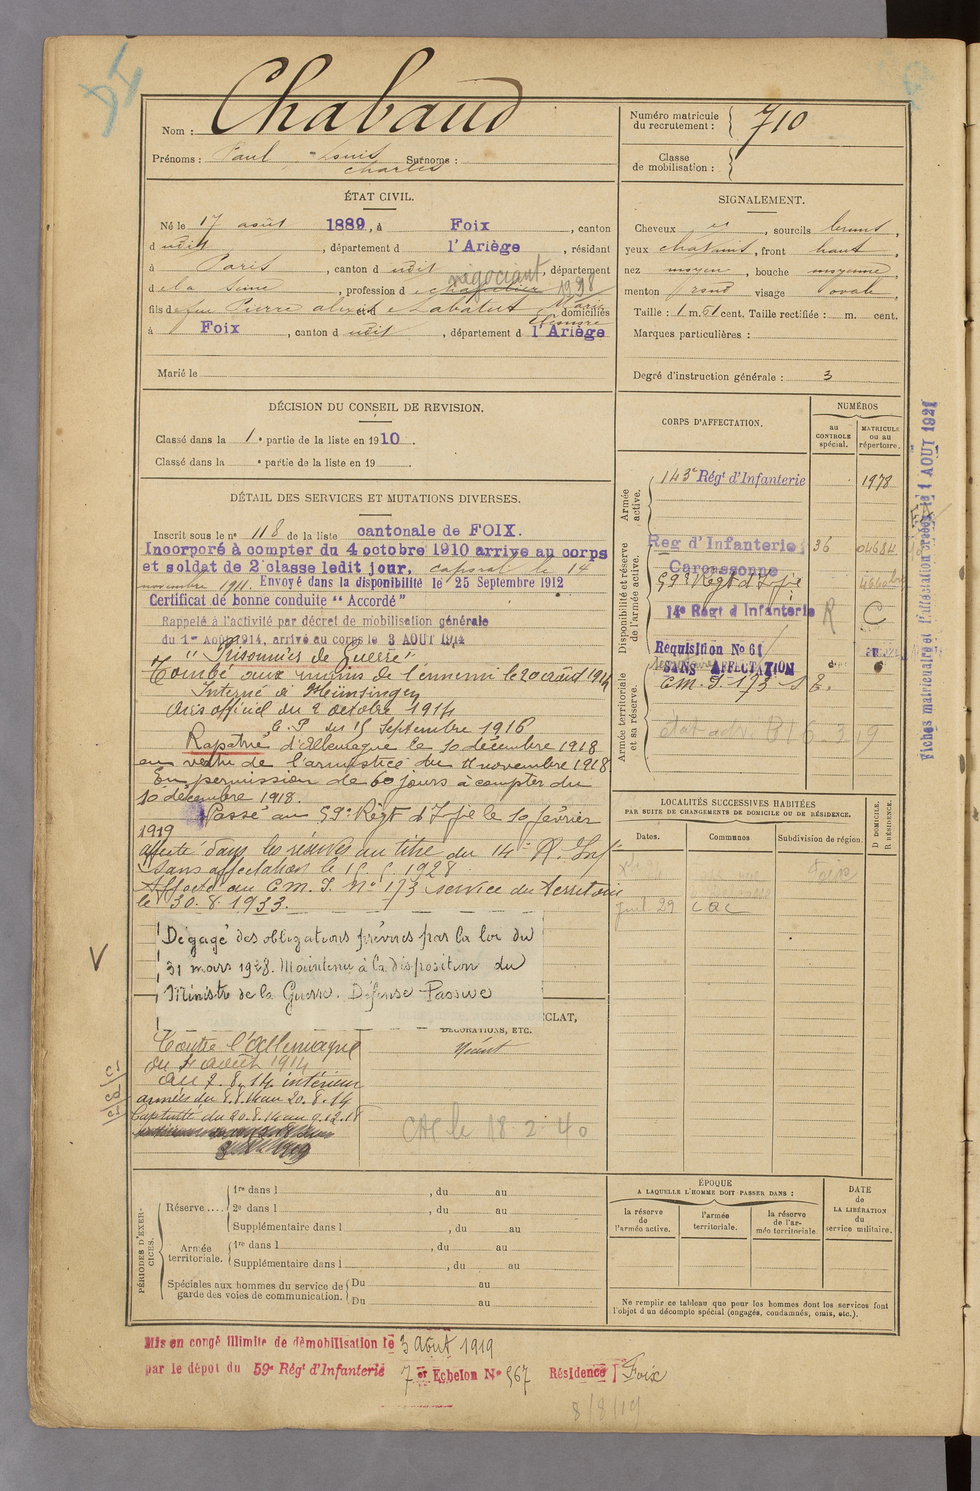 Nom : Chabaud
Prénoms : Paul - Louis Surnoms :
Charles
ÉTAT CIVIL.
Né le 17 août 1889, à Foix, canton
dudit, département d l'Ariège, résidant
à Paris, canton dudit, département
négociant
de la Seine, profession d
fils de feu Pierre et de Labatut Marie domiciliés
Eléonore
à Foix, canton dudit, département d l'Ariège
Marié le
DÉCISION DU CONSEIL DE REVISION.
Classé dans la 1e partie de la liste en 1910.
Classé dans la e partie de la liste en 19
DÉTAIL DES SERVICES ET MUTATIONS DIVERSES.
Inscrit sous le n° 118 de la liste cantonale de FOIX.
Incorporé à compter du 4 octobre 1910 arrive au corps
et soldat de 2e classe ledit jour, caporal le 14
novembre 1911. Envoyé dans la disponibilité le 25 Septembre 1912
Certificat de bonne conduite "Accordé"
Rappelé à l'activité par décret de mobilisation générale
du 1er Août 1914, arrivé au corps le 3 AOUT 1914
"Prisonnier de Guerre"
Tombé aux mains de l'ennemi le 20 août 1914
Interné à Münsingen
Avis officiel du 2 octobre 1914
C.P. du 15 Septembre 1916
Rapatrié d'Allemagne le 10 décembre 1918
en vertu de l'armistice du 11 novembre 1918
En permission de 60 jours à compter du
10 décembre 1918.
Passé au 59e Régt d'Infie le 10 février
1919
affecté dans les réserves au titre du 14e R. Inf
Sans affectation le 15.5.1928
Affecté au C.M.I. N° 173 service du Territoire
le 30.8.1933.
Dégagé des obligations prévues par la loi du
31 mars 1928. Maintenu à la disposition du
Ministre de la Guerre. Défense Passive
ÉCLAT,
DÉCORATIONS, ETC.
Néant
Contre l'Allemagne
du 2 août 1914
au 7.8.14 intérieur
armées du 8.8.14 au 20.8.14
Captivité du 20.8.14 au 9.12.18
CAC le 18-2-40
Numéro matricule
du recrutement : 710
Classe
de mobilisation :
SIGNALEMENT.
Cheveux et, sourcils bruns,
yeux chatains, front haut,
nez moyen, bouche moyenne,
menton rond visage ovale,
Taille : 1 m. 61 cent. Taille rectifiée : m. cent.
Marques particulières :
Degré d'instruction générale : 3
CORPS D'AFFECTATION.
NUMÉROS
au CONTROLE spécial.
MATRICULE ou au répertoire.
Armée active.
143e Régt d'Infanterie 1978
Disponibilité et réserve de l'armée active.
Reg d'Infanterie 36 04684
Carcassonne
59e Régt d'Infie
14e Régt d'Infanterie R C
Armée territoriale et sa réserve.
Requisition N° 61
SANS AFFECTATION
C.M.I. 173 S.T.
Fiches matriculaire et d'affectation créées le 1 AOUT 1921
LOCALITÉS SUCCESSIVES HABITÉES
PAR SUITE DE CHANGEMENTS DE DOMICILE OU DE RÉSIDENCE.
Dates. Communes Subdivision de région. D DOMICILE. R RÉSIDENCE.
Foix
Juil. 29
PÉRIODES D'EXERCICES.
Réserve .... 1re dans l , du au
2e dans l , du au
Supplémentaire dans l , du au
Armée territoriale. 1re dans l , du au
Supplémentaire dans l , du au
Spéciales aux hommes du service de Du au
garde des voies de communication. Du au
ÉPOQUE
A LAQUELLE L'HOMME DOIT PASSER DANS :
la réserve de l'armée active.
l'armée territoriale.
la réserve de l'armée territoriale
DATE de LA LIBÉRATION du service militaire.
Ne remplir ce tableau que pour les hommes dont les services font
l'objet d'un décompte spécial (engagés, condamnés, omis, etc.).
Mis en congé illimité de démobilisation le 3 Août 1919
par le dépot du 59e Régt d'Infanterie 7e Echelon N° 567 Résidence Foix
8/8/19